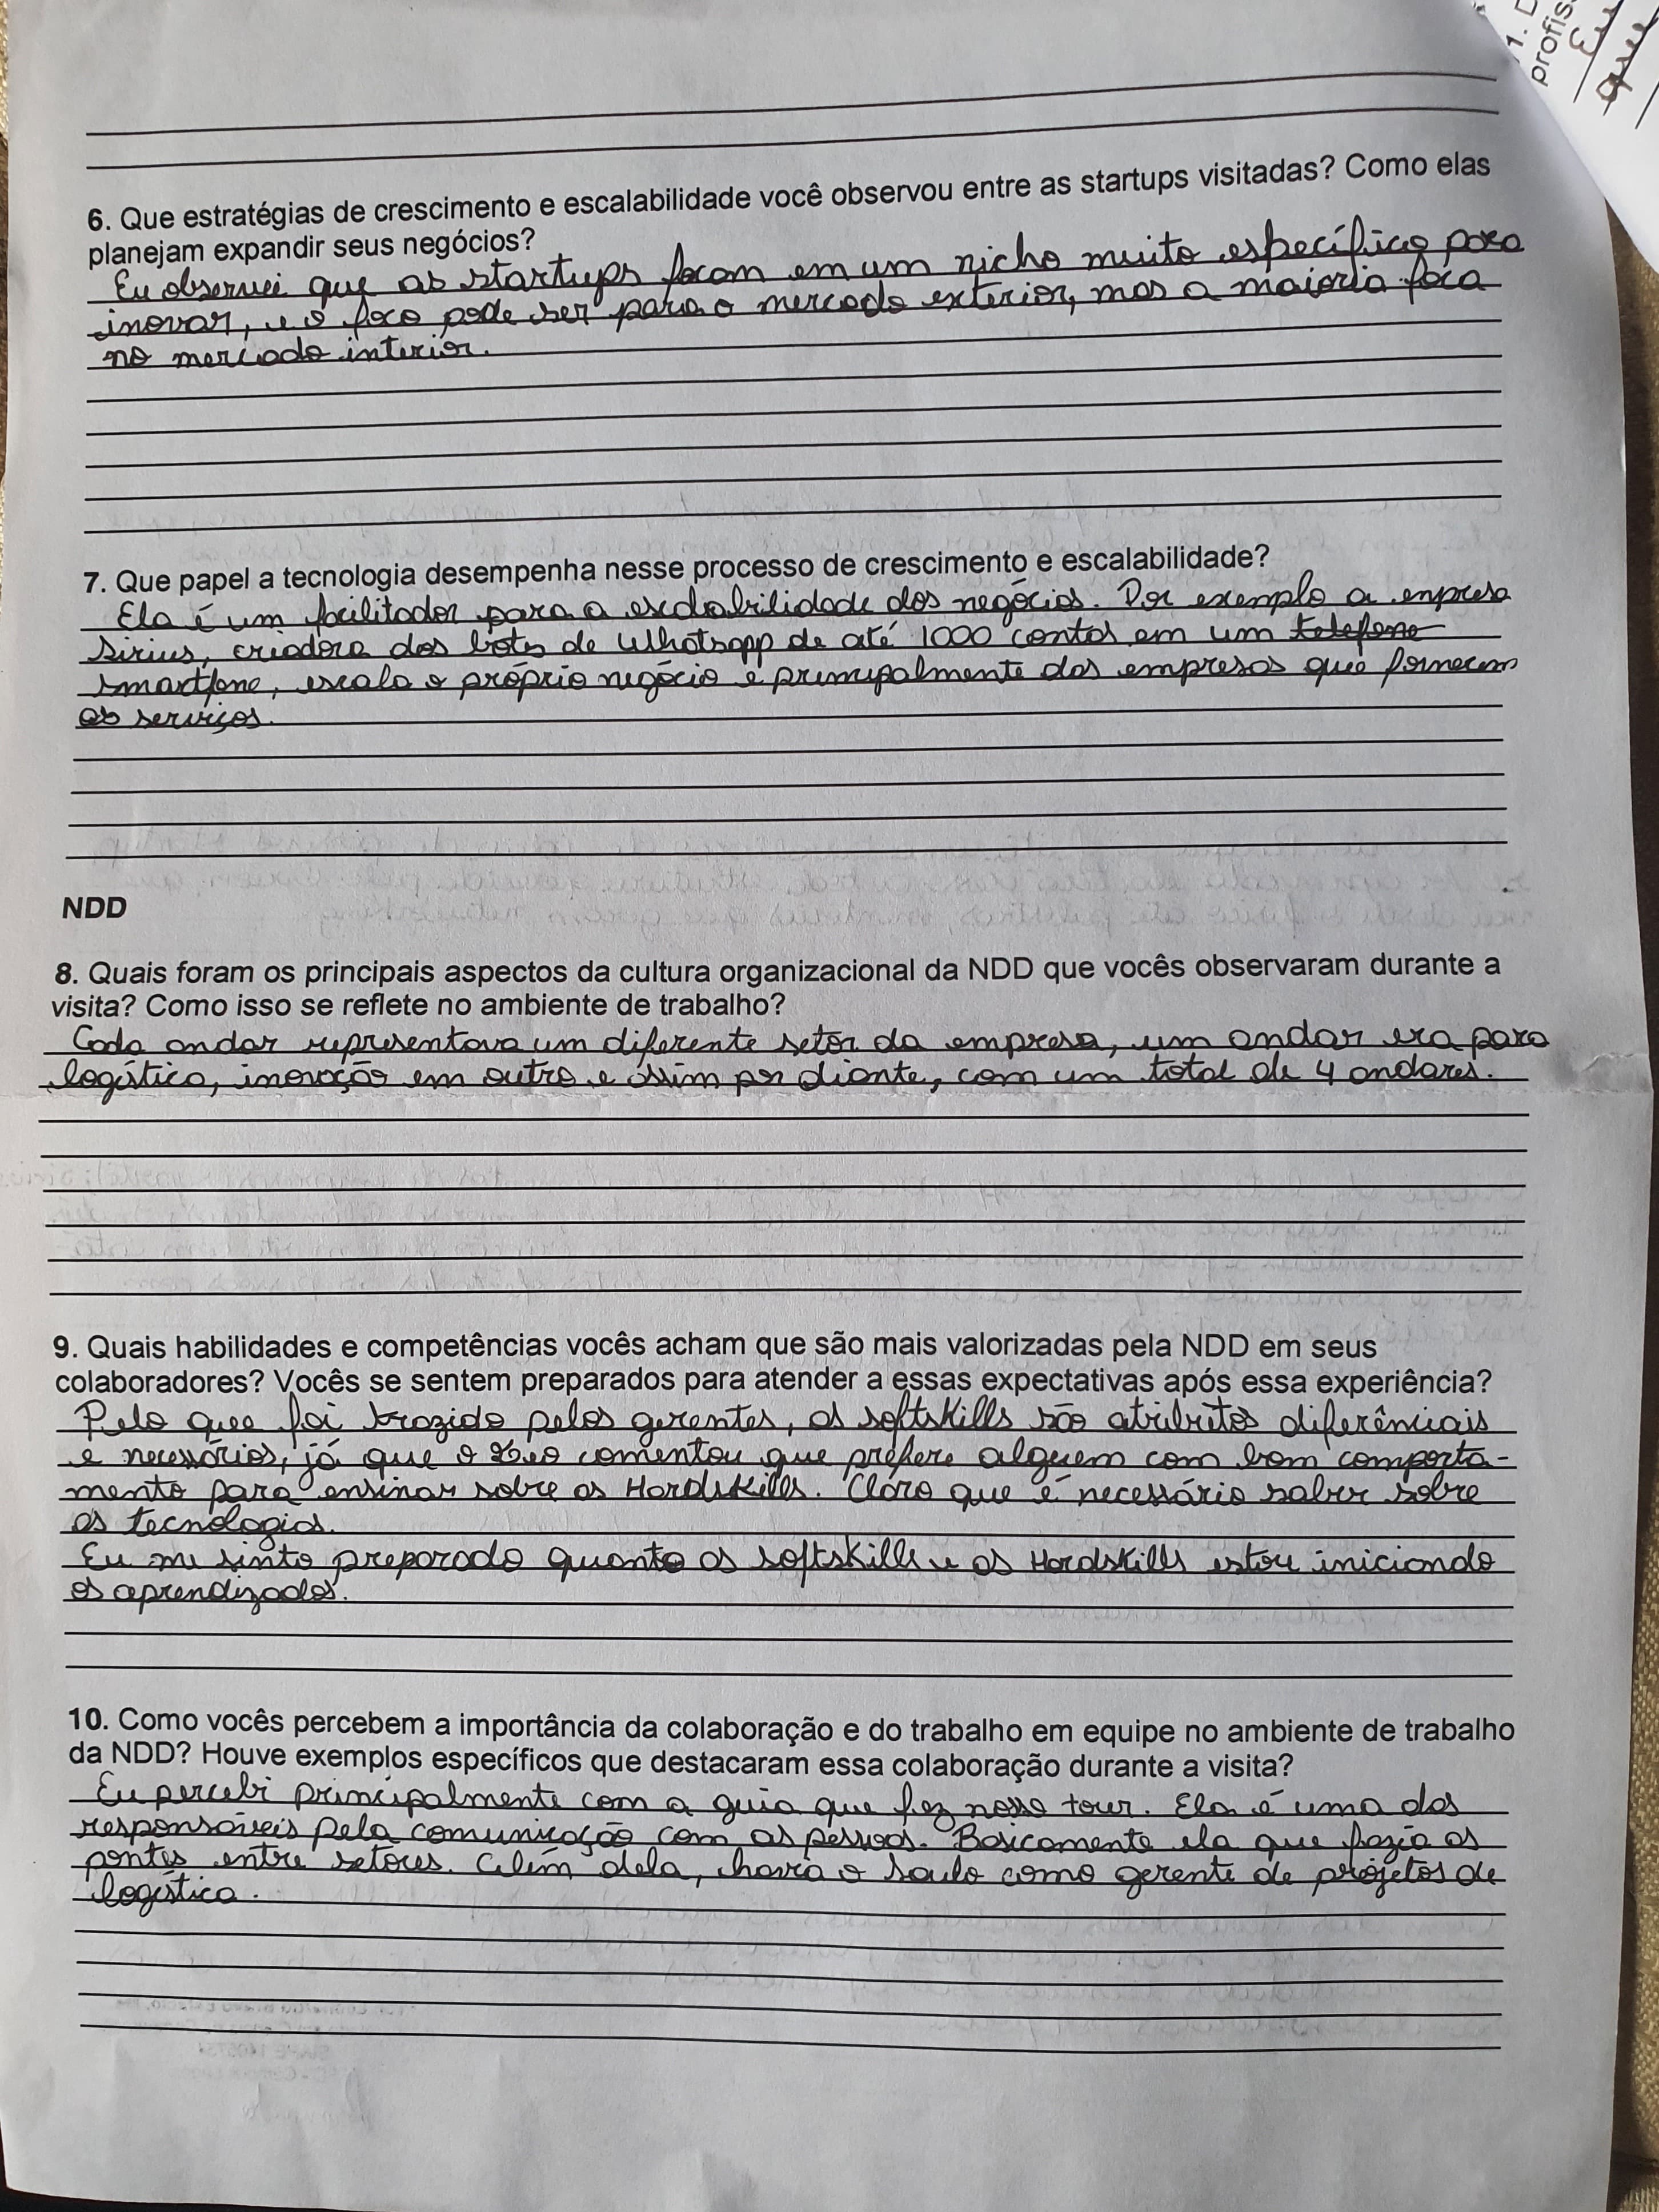 1. D
profis
Eu
que
6. Que estratégias de crescimento e escalabilidade você observou entre as startups visitadas? Como elas
planejam expandir seus negócios?
Eu observei que as startups focam em um nicho muito específico para
inovar, e o foco pode ser para o mercado exterior, mas a maioria foca
no mercado interior.
7. Que papel a tecnologia desempenha nesse processo de crescimento e escalabilidade?
Ela é um facilitador para a escalabilidade dos negócios. Por exemplo a empresa
Sirius, criadora dos bots de Whatsapp de até 1000 contas em um telefone
smartfone, escala o próprio negócio e principalmente das empresas que fornecem
os serviços.
NDD
8. Quais foram os principais aspectos da cultura organizacional da NDD que vocês observaram durante a
visita? Como isso se reflete no ambiente de trabalho?
Cada andar representava um diferente setor da empresa, um andar era para
logística, inovação em outro e assim por diante, com um total de 4 andares.
9. Quais habilidades e competências vocês acham que são mais valorizadas pela NDD em seus
colaboradores? Vocês se sentem preparados para atender a essas expectativas após essa experiência?
Pelo que foi trazido pelos gerentes, as softskills são atributos diferênciais
e necessários, já que o comentou que prefere alguem com bom comporta-
mento para ensinar sobre as Hardskills. Claro que é necessário saber sobre
as tecnologias.
Eu me sinto preparado quanto as softskills e as Hardskills estou iniciando
os aprendizados.
10. Como vocês percebem a importância da colaboração e do trabalho em equipe no ambiente de trabalho
da NDD? Houve exemplos específicos que destacaram essa colaboração durante a visita?
Eu percebi principalmente com a guia que fez nosso tour. Ela é uma das
responsáveis pela comunicação com as pessoas. Basicamente ela que fazia as
pontes entre setores. Além dela, havia o Saulo como gerente de projetos de
logística.